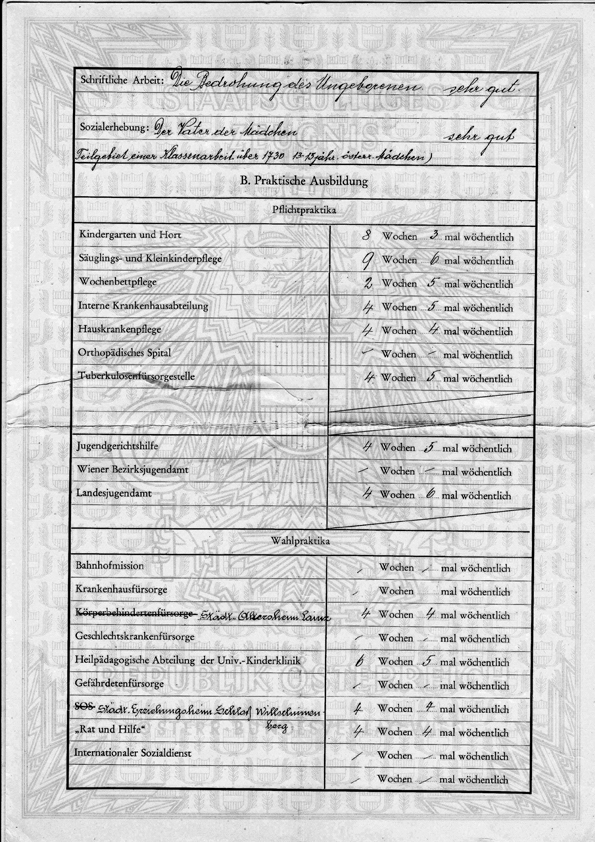 Schriftliche Arbeit: Die Bedrohung des Ungeborenen sehr gut.
Sozialerhebung: Der Vater der Mädchen sehr gut
Teilgebiet einer Klassenarbeit über 1730 13-15jähr. österr. Mädchen)
B. Praktische Ausbildung
Pflichtpraktika
Kindergarten und Hort 8 Wochen 3 mal wöchentlich
Säuglings- und Kleinkinderpflege 9 Wochen 6 mal wöchentlich
Wochenbettpflege 2 Wochen 5 mal wöchentlich
Interne Krankenhausabteilung 4 Wochen 5 mal wöchentlich
Hauskrankenpflege 4 Wochen 4 mal wöchentlich
Orthopädisches Spital - Wochen - mal wöchentlich
Tuberkulosenfürsorgestelle 4 Wochen 5 mal wöchentlich
Jugendgerichtshilfe 4 Wochen 5 mal wöchentlich
Wiener Bezirksjugendamt - Wochen - mal wöchentlich
Landesjugendamt 4 Wochen 6 mal wöchentlich
Wahlpraktika
Bahnhofmission - Wochen - mal wöchentlich
Krankenhausfürsorge - Wochen mal wöchentlich
Körperbehindertenfürsorge Städt. Altersheim Lainz 4 Wochen 4 mal wöchentlich
Geschlechtskrankenfürsorge - Wochen - mal wöchentlich
Heilpädagogische Abteilung der Univ.-Kinderklinik 6 Wochen 5 mal wöchentlich
Gefährdetenfürsorge - Wochen - mal wöchentlich
SOS Städt. Erziehungsheim Schloß Wilhelminen- 4 Wochen 4 mal wöchentlich
berg
„Rat und Hilfe“ 4 Wochen 4 mal wöchentlich
Internationaler Sozialdienst - Wochen - mal wöchentlich
- Wochen - mal wöchentlich